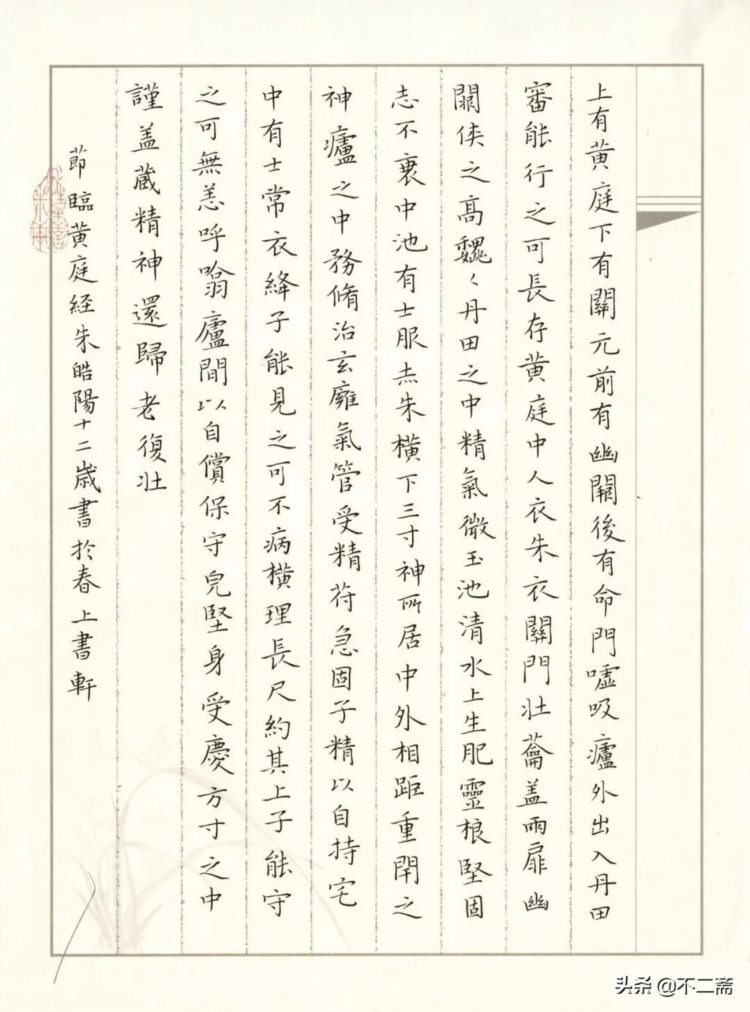 上有黄庭下有關元前有幽闕後有命門嘘吸廬外出入丹田
審能行之可長存黄庭中人衣朱衣關門壯蘥盖兩扉幽
闕侠之高巍〻丹田之中精氣微玉池清水上生肥靈根堅固
志不衰中池有士服赤朱横下三寸神所居中外相距重閇之
神廬之中務脩治玄廱氣管受精苻急固子精以自持宅
中有士常衣絳子能見之可不病横理長尺約其上子能守
之可無恙呼噏廬間以自償保守皃堅身受慶方寸之中
謹盖蔵精神還歸老復壯
莭臨黄庭经朱皓陽十二歲書於春上書軒
头条 @不二斋